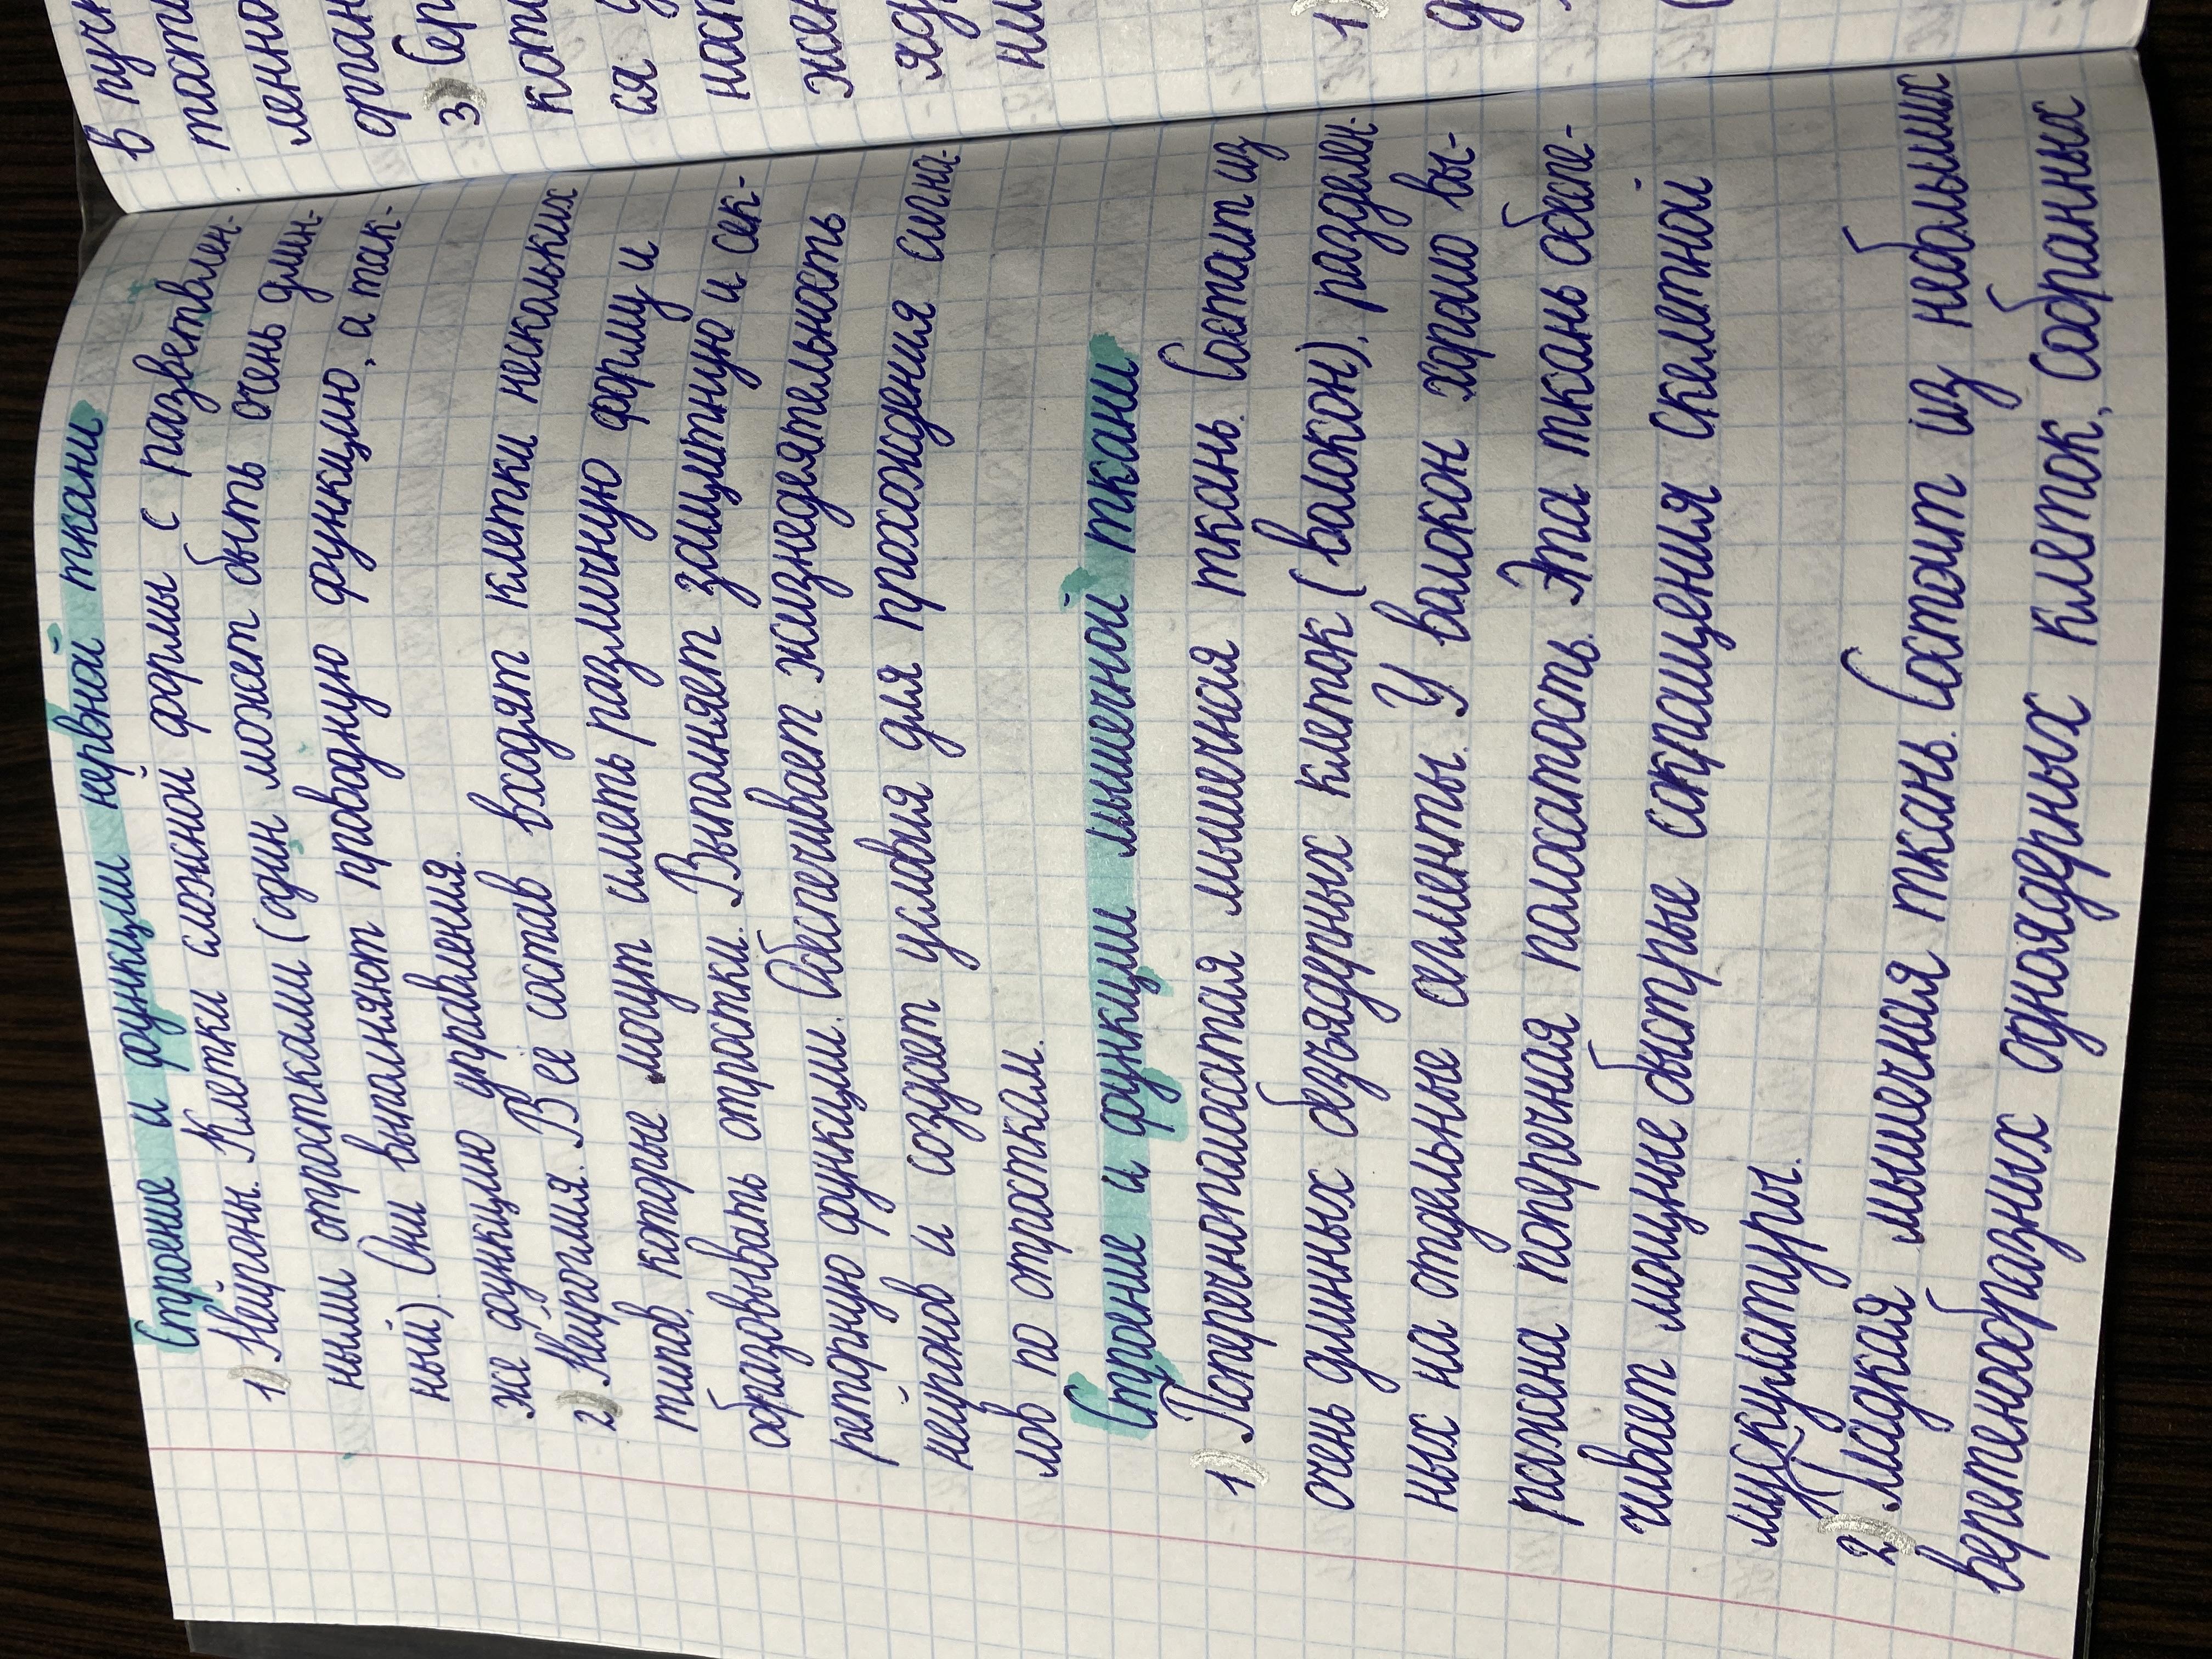 Строение и функции нервной ткани
1) Нейроны. Клетки сложной формы с разветвлен-
ными отростками (один может быть очень длин-
ный). Они выполняют проводную функцию, а так-
же функцию управления.
2) Нейроглия. В её состав входят клетки нескольких
типов, которые могут иметь различную форму и
образовывать отростки. Выполняет защитную и сек-
реторную функции. Обеспечивает жизнедеятельность
нейронов и создает условия для прохождения сигна-
лов по отросткам.
Строение и функции мышечной ткани
1) Поперечнополосатая мышечная ткань. Состоит из
очень длинных безъядерных клеток (волокон), разделен-
ных на отдельные сегменты. У волокон хорошо вы-
ражена поперечная полосатость. Эта ткань обеспе-
чивает мощные быстрые сокращения скелетной
мускулатуры.
2) Гладкая мышечная ткань. Состоит из небольших
веретенообразных одноядерных клеток, собранных
в пуч
лен
3) Сер
кот
ся
ни
1)